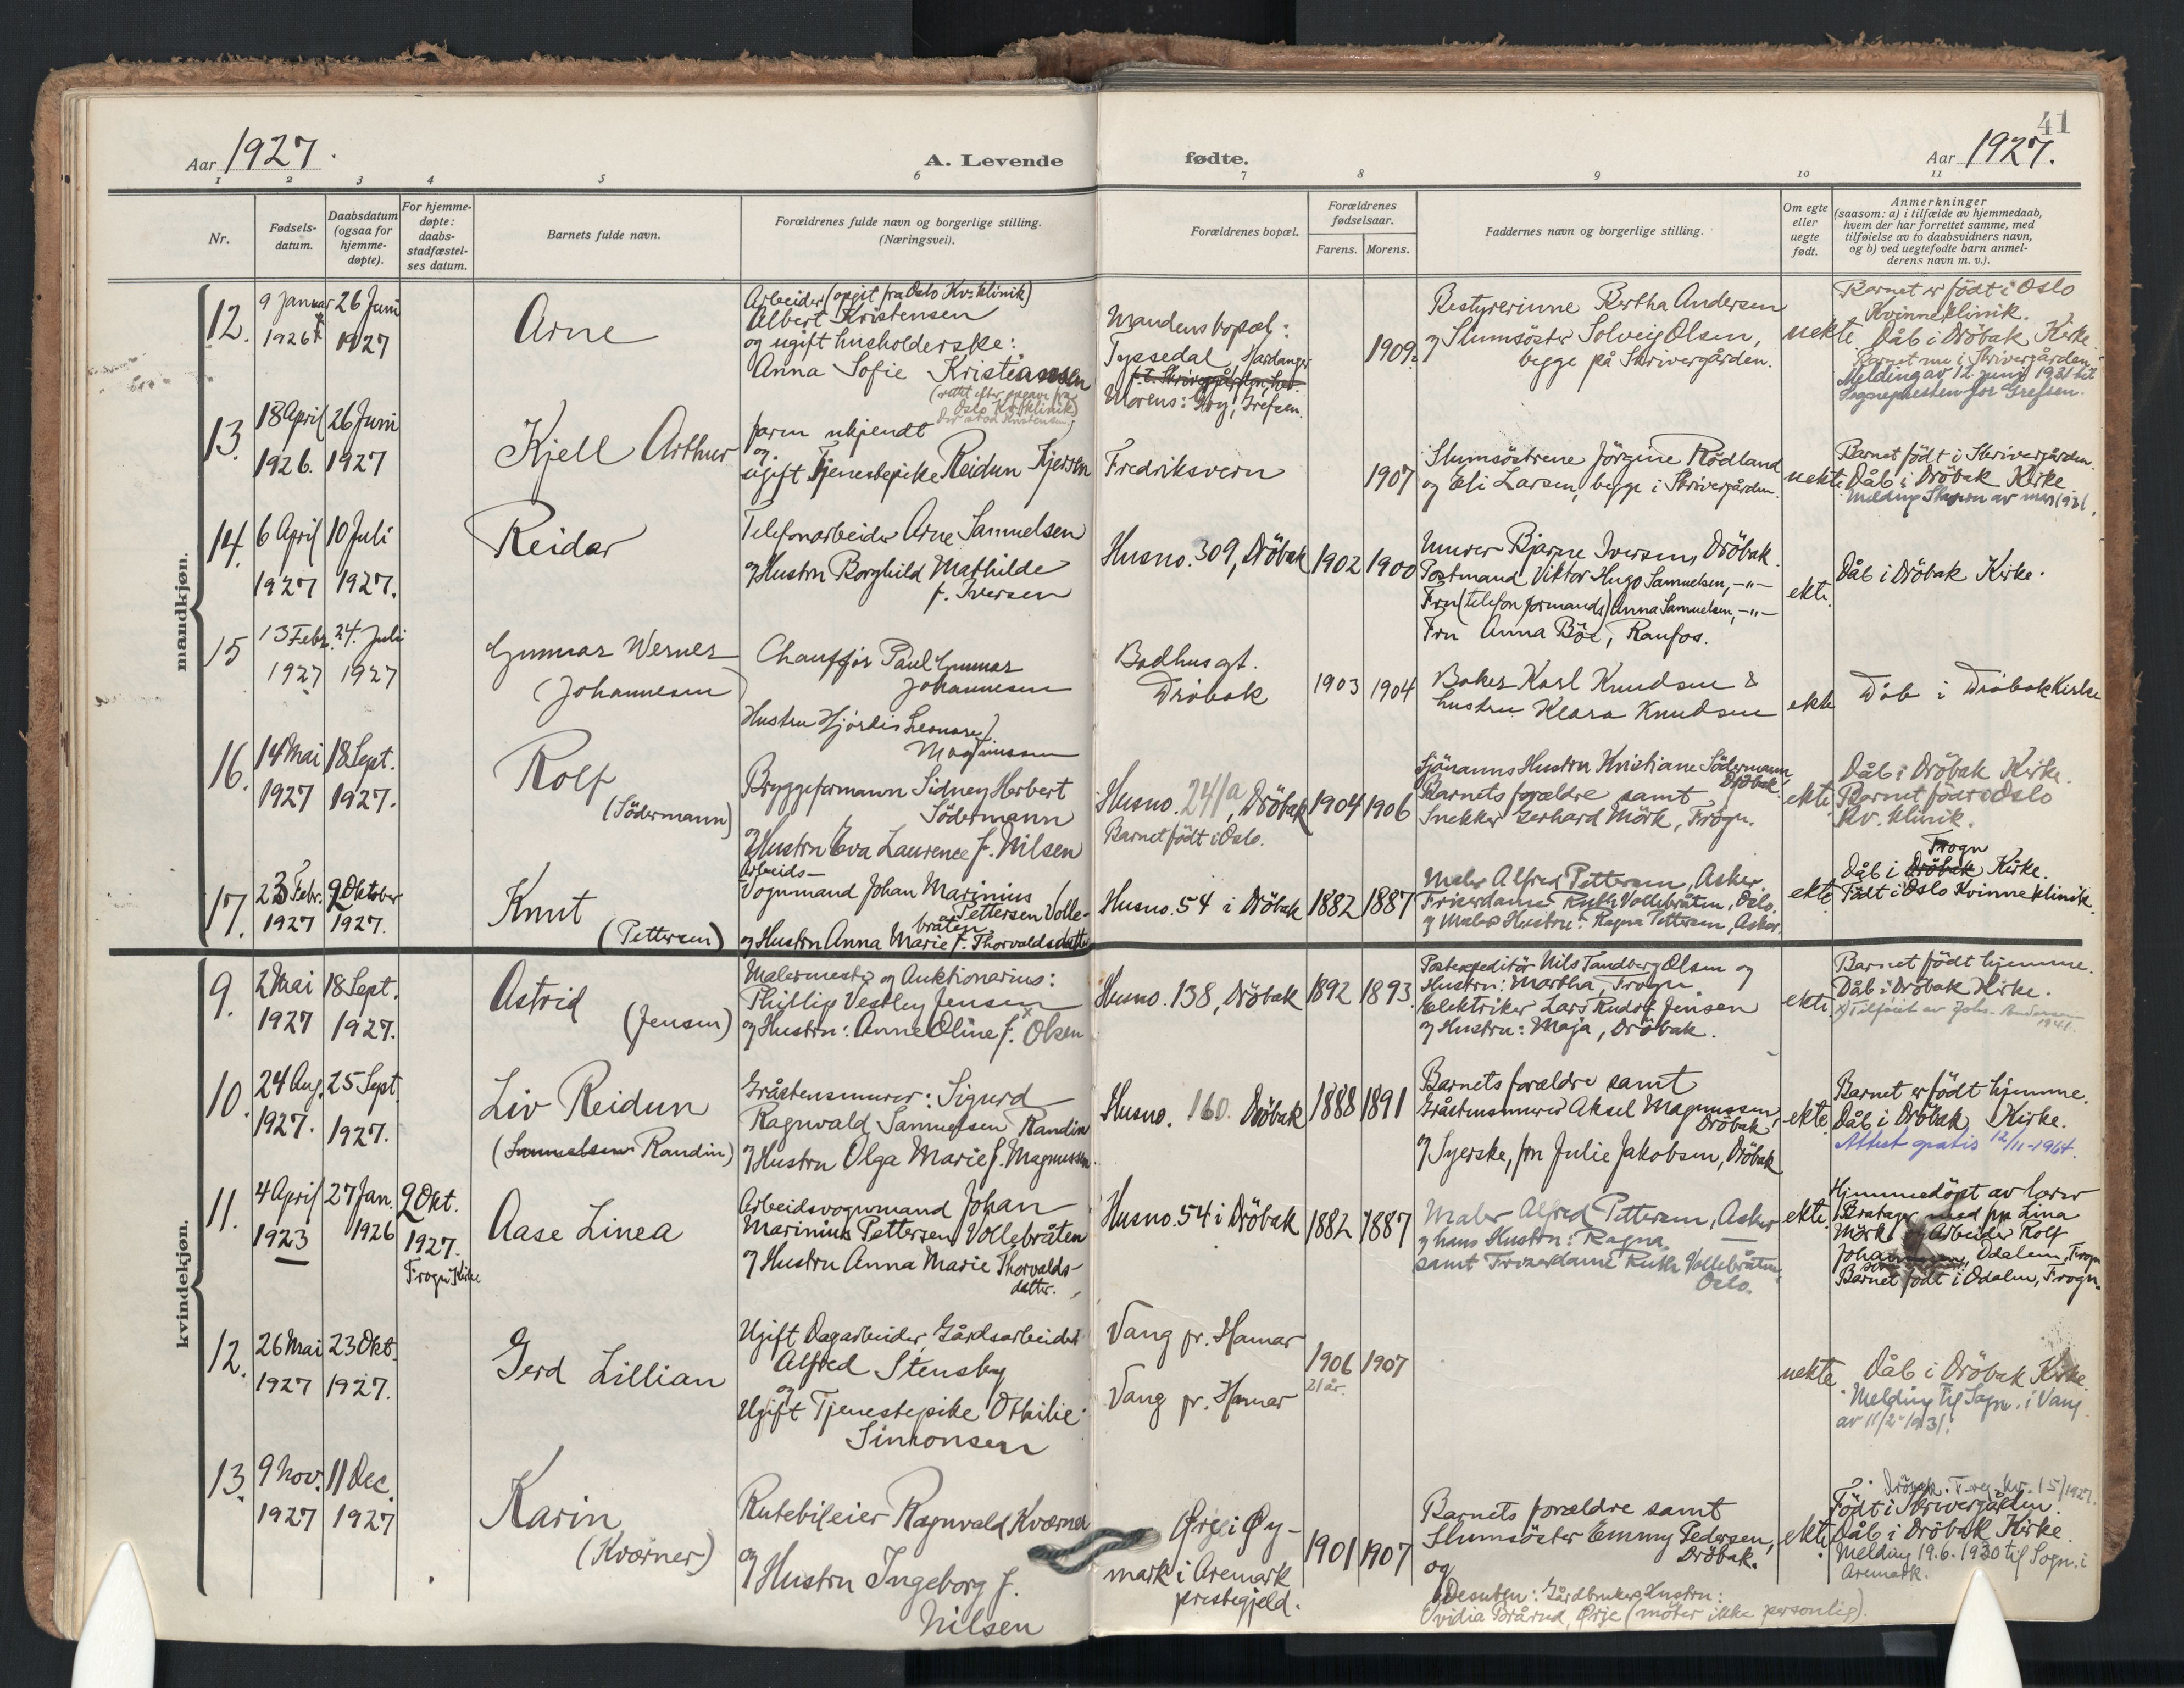 41
Aar 1927.
A. Levende
fødte.
Aar 1927.
1 2 3 4 5 6 7 8 9 10 11
Nr.
Fødsels-
datum.
Daabsdatum
(ogsaa for
hjemme-
døpte).
For hjemme-
døpte:
daabs-
stadfæstel-
ses datum.
Barnets fulde navn.
Forældrenes fulde navn og borgerlige stilling.
(Næringsvei).
Forældrenes bopæl.
Forældrenes
fødselsaar.
Farens. Morens.
Faddernes navn og borgerlige stilling.
Om egte
eller
uegte
født.
Anmerkninger
(saasom: a) i tilfælde av hjemmedaab,
hvem der har forrettet samme, med
tilføielse av to daabsvidners navn,
og b) ved uegtefødte barn anmel-
derens navn m. v.).
mandkjøn.
12.
9 Januar
1926
26 Juni
1927
Arne
Arbeider (opgit fra Oslo Kv. klinik)
Albert Kristensen
og ugift husholderske:
Anna Sofie Kristiansen
(rettet efter opgave fra
Oslo Kv. klinik)
Mandens bopæl:
Tyssedal, Hardanger
Morens: Grefsen.
1909.
Bestyrerinne Bertha Andersen
og Slumsöster Solveig Olsen,
begge på Skrivergården.
uekte
Barnet er födt i Oslo
Kvinneklinik.
Dåb i Dröbak Kirke.
Barnet nu i Skrivergården
Melding av 12 juni 1931 til
Sognepresten for Grefsen.
13.
18 April
1926.
26 Juni
1927
Kjell Arthur
Faren ukjendt
og
ugift Tjenestepike Reidun
Fredriksvern
1907
Slumsöstrene Jörgine Rödland
og Eli Larsen, begge i Skrivergården.
uekte
Barnet födt i Skrivergården.
Dåb i Dröbak Kirke.
14.
6 April
1927
10 Juli
1927.
Reidar
Telefonarbeider Arne Samuelsen
og Hustru Borghild Mathilde
f. Iversen
Husno. 309, Dröbak
1902 1900
Murer Bjarne Iversen, Dröbak.
Postmand Viktor Hugo Samuelsen, -"-
Fru (telefonformands) Anna Samuelsen, -"-
Fru Anna Böe, Raufos.
ekte.
Dåb i Dröbak Kirke.
15
13 Febr.
1927
24. Juli
1927
Gunnar Werner
(Johannesen)
Chauffør Paul Gunnar
Johannesen
Hustru Hjördis Leonore
Magnussen
Badhusgt.
Drøbak
1903 1904
Baker Karl Knudsen &
hustru Klara Knudsen
ekte
Dåb i Drøbak Kirke
16.
14 Mai
1927
18 Sept.
1927.
Rolf
(Södermann)
Bryggeformann Sidney Herbert
Södermann
og Hustru Eva Laurence f. Nilsen
Husno. 241/a, Dröbak
Barnet födt i Oslo.
1904 1906
Sjömanns Hustru Kristiane Södermann
Dröbak.
Barnets forældre samt
Snekker Gerhard Mörk, Frogn.
ekte
Dåb i Dröbak Kirke.
Barnet födt i Oslo
Kv. klinik.
17.
23 Febr.
1927
2 Oktober
1927.
Knut
(Pettersen)
Arbeids-
Vognmand Johan Marinius
Pettersen Volle-
bråten
og Hustru Anna Marie f. Thorvaldsdatter
Husno. 54 i Dröbak
1882 1887
Maler Alfred Pettersen, Asker.
Friserdame Ruth Vollebråten, Oslo.
og Malers Hustru: Ragna Pettersen, Asker.
ekte
Frogn
Dåb i Dröbak Kirke.
Födt i Oslo Kvinneklinik.
kvindekjøn.
9.
2 Mai
1927
18 Sept.
1927.
Astrid
(Jensen)
Malermester og Auktionarius:
Phillip Vestby Jensen
og Hustru: Anne Oline f. Olsen
Husno. 138, Dröbak
1892 1893.
Postexpeditör Nils Tandberg Olsen og
Hustru: Martha, Frogn.
Elektriker Lars Rudolf Jensen
og Hustru: Maja, Dröbak.
ekte.
Barnet födt hjemme.
Dåb i Dröbak Kirke.
x) Tilföiet av Johs. Andersen
1941.
10.
24 Aug.
1927.
25 Sept.
1927.
Liv Reidun
(Samuelsen Randin)
Gråstensmurer: Sigurd
Ragnvald Samuelsen Randin
og Hustru Olga Marie f. Magnussen.
Husno. 160. Dröbak
1888 1891
Barnets forældre samt
Gråstensmurer Aksel Magnussen,
Dröbak
og Syerske, frn Julie Jakobsen, Dröbak
ekte.
Barnet er födt hjemme.
Dåb i Dröbak Kirke.
Attest gratis 12/11-1964.
11.
4 April
1923
27 Jan.
1926
2 Okt.
1927.
Frogn Kirke
Aase Linea
Arbeidsvognmand Johan
Marinius Pettersen Vollebråten
og Hustru Anna Marie Thorvalds-
datter.
Husno. 54 i Dröbak
1882 1887
Maler Alfred Pettersen, Asker
og hans Hustru: Ragna,
samt Friserdame Ruth Vollebråten,
Oslo.
ekte.
Hjemmedöpt av lærer
med frn Lina
Mörk og Arbeider Rolf
Odalen, Frogn
Barnet födt i Odalen, Frogn.
12.
26 Mai
1927
23 Okt.
1927.
Gerd Lillian
Ugift Dagarbeider, Gårdsarbeider
Alfred Stensby
og
Ugift Tjenestepike Othilie
Simonsen
Vang pr. Hamar
Vang pr. Hamar
1906
21 år.
1907
uekte
Dåb i Dröbak Kirke.
Melding til Sogn. i Vang
av 11/2-1931.
13.
9 Nov.
1927
11 Dec.
1927
Karin
(Kværner)
Rutebileier Ragnvald Kværner
og
Hustru Ingeborg f.
Nilsen
Ørje i Øy-
mark i Aremark
prestegjeld.
1901 1907
Barnets forældre samt
Slumsöster Emmy Pedersen,
Dröbak.
og
Desuten: Gårdbruker Hustru:
Ovidia Brårud, Ørje (möter ikke personlig).
ekte.
Födt i Skrivergården.
Dåb i Dröbak Kirke.
Melding 19.6.1930 til Sogn. i
Aremark.